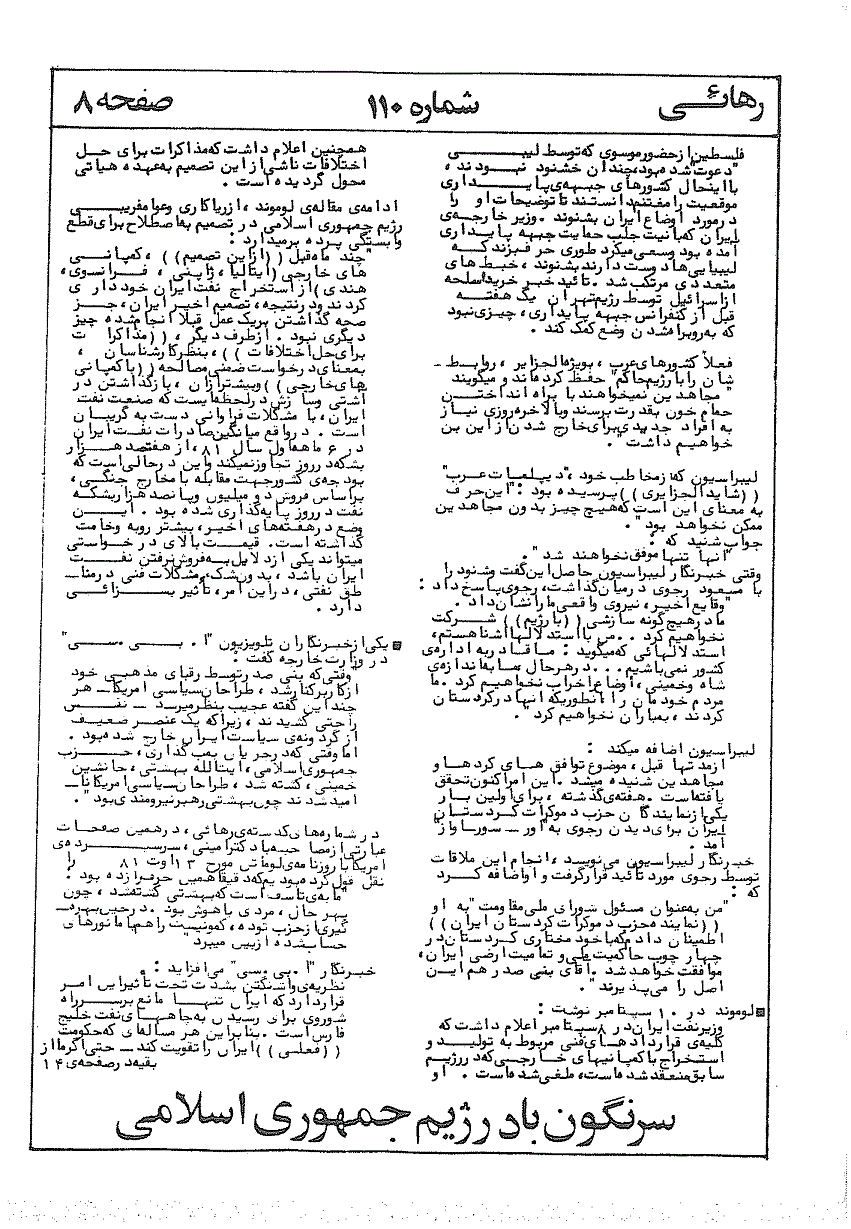 رهائی
شماره ۱۱۰
صفحه ۸
فلسطین از حضور موسوی که توسط لیبی
"دعوت" شده بود، چندان خشنود نبودند،
با اینحال کشورهای جبهه‌ی پایداری
موقعیت را مغتنم دانستند تا توضیحات او را
در مورد اوضاع ایران بشنوند. وزیر خارجه‌ی
ایران که با نیت جلب حمایت جبهه پایداری
آمده بود وسعی میکرد طوری حرف بزند که
لیبیایی‌ها دوست دارند بشنوند، خبط های
متعددی مرتکب شد. تأئید خبر خرید اسلحه
از اسرائیل توسط رژیم تهران یک هفته
قبل از کنفرانس جبهه پایداری، چیزی نبود
که به روبراه شدن وضع کمک کند.
فعلاً کشورهای عرب، بویژه الجزایر، روابط‌ـ
شان را با رژیم حاکم حفظ کرده‌اند و میگویند
"مجاهدین نمیخواهند با براه انداختن
حمام خون بقدرت برسند وبالاخره روزی نیاز
به افراد جدیدی برای خارج شدن از این بن
خواهیم داشت".
لیبراسیون که از مخاطب خود، "دیپلمات عرب"
((شاید الجزایری)) پرسیده بود: "این حرف
به معنای این است که هیچ چیز بدون مجاهدین
ممکن نخواهد بود".
جواب شنید که:
"آنها تنها موفق نخواهند شد".
وقتی خبرنگار لیبراسیون حاصل این گفت وشنود را
با مسعود رجوی در میان گذاشت، رجوی پاسخ داد:
"وقایع اخیر، نیروی واقعی ما را نشان داد.
ما در هیچ گونه سازشی ((با رژیم)) شرکت
نخواهیم کرد ... من با استدلالها آشنا هستم،
استدلالهائی که میگوید: ما قادر به اداره‌ی
کشور نمی باشیم ... در هر حال ما به اندازه‌ی
شاه وخمینی، اوضاع را خراب نخواهیم کرد. ما
مردم خودمان را آنطوریکه آنها در کردستان
کردند، بمباران نخواهیم کرد".
لیبراسیون اضافه میکند:
از مدتها قبل، موضوع توافق های کردها و
مجاهدین شنیده میشد. این امر اکنون تحقق
یافته است. هفته‌ی گذشته، برای اولین بار
یکی از نمایندگان حزب دموکرات کردستان
ایران برای دیدن رجوی به "اور ـ سور ـ اواز"
آمد.
خبرنگار لیبراسیون می نویسد، انجام این ملاقات
توسط رجوی مورد تأئید قرار گرفت و او اضافه کرد
که:
"من به عنوان مسئول شورای ملی مقاومت" به او
((نماینده حزب دموکرات کردستان ایران))
اطمینان دادم که با خود مختاری کردستان در
چهارچوب حاکمیت ملی و تمامیت ارضی ایران،
موافقت خواهد شد. آقای بنی صدر هم این
اصل را می پذیرند".
لوموند در ۱۰ سپتامبر نوشت:
وزیر نفت ایران در ۸ سپتامبر اعلام داشت که
کلیه‌ی قراردادهای فنی مربوط به تولید و
استخراج با کمپانیهای خارجی که در رژیم
سابق منعقد شده است، ملغی شده است. او
همچنین اعلام داشت که مذاکرات برای حل
اختلافات ناشی از این تصمیم به عهده هیاتی
محول گردیده است.
ادامه‌ی مقاله‌ی لوموند، از ریاکاری وعوامفریبی
رژیم جمهوری اسلامی در تصمیم به اصطلاح برای قطع
وابستگی پرده برمیدارد:
"چند ماه قبل ((از این تصمیم))، کمپانی
های خارجی (ایتالیا، ژاپنی، فرانسوی،
هندی) از استخراج نفت ایران خودداری
کردند ودرنتیجه، تصمیم اخیر ایران، جز
صحه گذاشتن بریک عمل قبلا انجام شده چیز
دیگری نبود. از طرف دیگر، ((مذاکرات
برای حل اختلافات))، بنظر کارشناسان،
بمعنای درخواست ضمنی مصالحه ((با کمپانی
های خارجی)) وبیشتر از آن، بازگذاشتن در
آشتی وسازش در لحظه‌ایست که صنعت نفت
ایران، با مشکلات فراوانی دست به گریبان
است. در واقع میانگین صادرات نفت ایران
در ۶ ماهه اول سال ۸۱، از هفتصد هزار
بشکه در روز تجاوز نمیکند واین در حالی است که
بودجه‌ی کشور جهت مقابله با مخارج جنگی،
براساس فروش دو میلیون وپانصد هزار بشکه
نفت در روز پایه گذاری شده بود. این
وضع در هفته‌های اخیر، بیشتر رو به وخامت
گذاشته است. قیمت بالای درخواستی
میتواند یکی از دلایل به فروش نرفتن نفت
ایران باشد، بدون شک، مشکلات فنی در مناـ
طق نفتی، در این امر، تأثیر بسزائی
دارد.
یکی از خبرنگاران تلویزیون "ا. بی. سی"
در وزارت خارجه گفت:
"وقتی که بنی صدر توسط رقبای مذهبی خود
از کار برکنار شد، طراحان سیاسی امریکا ـ هر
چند این گفته عجیب بنظر میرسد ـ نفس
راحتی کشیدند، زیرا که یک عنصر ضعیف
از گردونه‌ی سیاست ایران خارج شده بود.
اما وقتی که در جریان بمب گذاری، حزب
جمهوری اسلامی، آیت‌الله بهشتی، جانشین
خمینی، کشته شد، طراحان سیاسی امریکا ناـ
امید شدند چون بهشتی رهبر نیرومندی بود".
در شماره‌های گذشته‌ی رهائی، در همین صفحات
عبارتی از مصاحبه با دکتر امینی، سرسپرده‌ی
آمریکا با روزنامه‌ی لوماتن مورخ ۱۳ اوت ۸۱ را
نقل قول کرده بودیم که دقیقا همین حرف را زده بود:
"مایه‌ی تاسف است که بهشتی کشته شد، چون
بهر حال، مردی با هوش بود. در حین بهره‌ـ
گیری از حزب توده، کمونیست را هم با مانورهای
حساب شده از بین میبرد"
خبرنگار "ا. بی. سی" می افزاید:
نظریه‌ی واشنگتن بشدت تحت تأثیر این امر
قرار دارد که ایران تنها مانع بر سر راه
شوروی برای رسیدن به چاههای نفت خلیج
فارس است. بنابراین هر مسأله‌ای که حکومت
((فعلی)) ایران را تقویت کند ـ حتی اگر ما از
بقیه در صفحه‌ی ۱۴
سرنگون باد رژیم جمهوری اسلامی